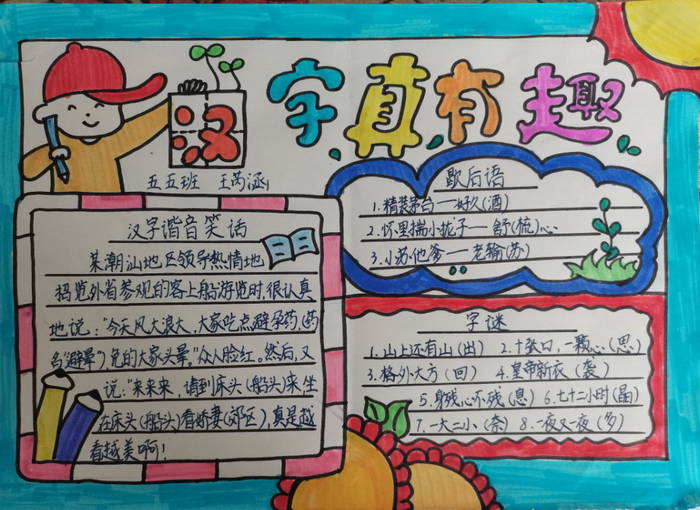 汉字真有趣
五五班 王芮涵
汉字谐音笑话
某潮汕地区领导热情地
招览外省参观的客上船游览时,很认真
地说:"今天风大浪大,大家吃点避孕药(药
名"避晕"),免的大家头晕。"众人脸红。然后,又
说:"来来来,请到床头(船头)来,坐
在床头(船头)看娇妻(郊区),真是越
看越美啊!
歇后语
1.精装茅台——好久(酒)
2.怀里揣小拢子——舒(梳)心
3.小苏他爹——老输(苏)
字谜
1.山上还有山(出) 2.十张口,一颗心(思)
3.格外大方(回) 4.皇帝新衣(袭)
5.身残心不残(息) 6.七十二小时(晶)
7.一大二小(奈) 8.一夜又一夜(多)